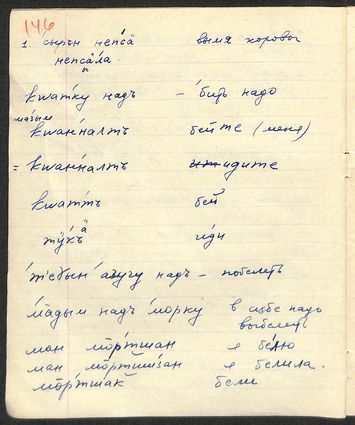 146
1. сырын непсӓ вымя коровы
непсӓла
ы
кватку надъ – бить надо
мазым
кванналтъ бейте (меня)
= кванналтъ идите
кватть бей
тӱкъ иди
ӓ
надъ – побелить
мāдым надъ морку в избе надо
выбелить
ман мōртшан я белю
ман мōртшизан я белила.
мōртшак бели